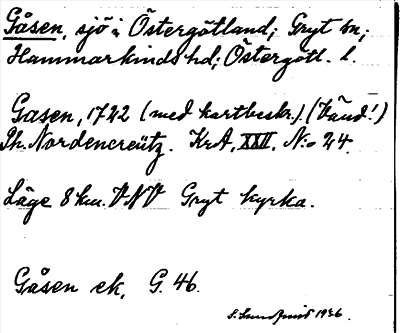 Gåsen, sjö i Östergötland; Gryt sn;
Hammarkinds hd; Östergötl. l.
Gasen, 1722 (med kartbeskr.) (Vänd!)
Ph. Nordencreütz. KrA, XXII, N:o 24.
Läge 8 km. VNV Gryt kyrka.
Gåsen ek. G. 46.
1936.